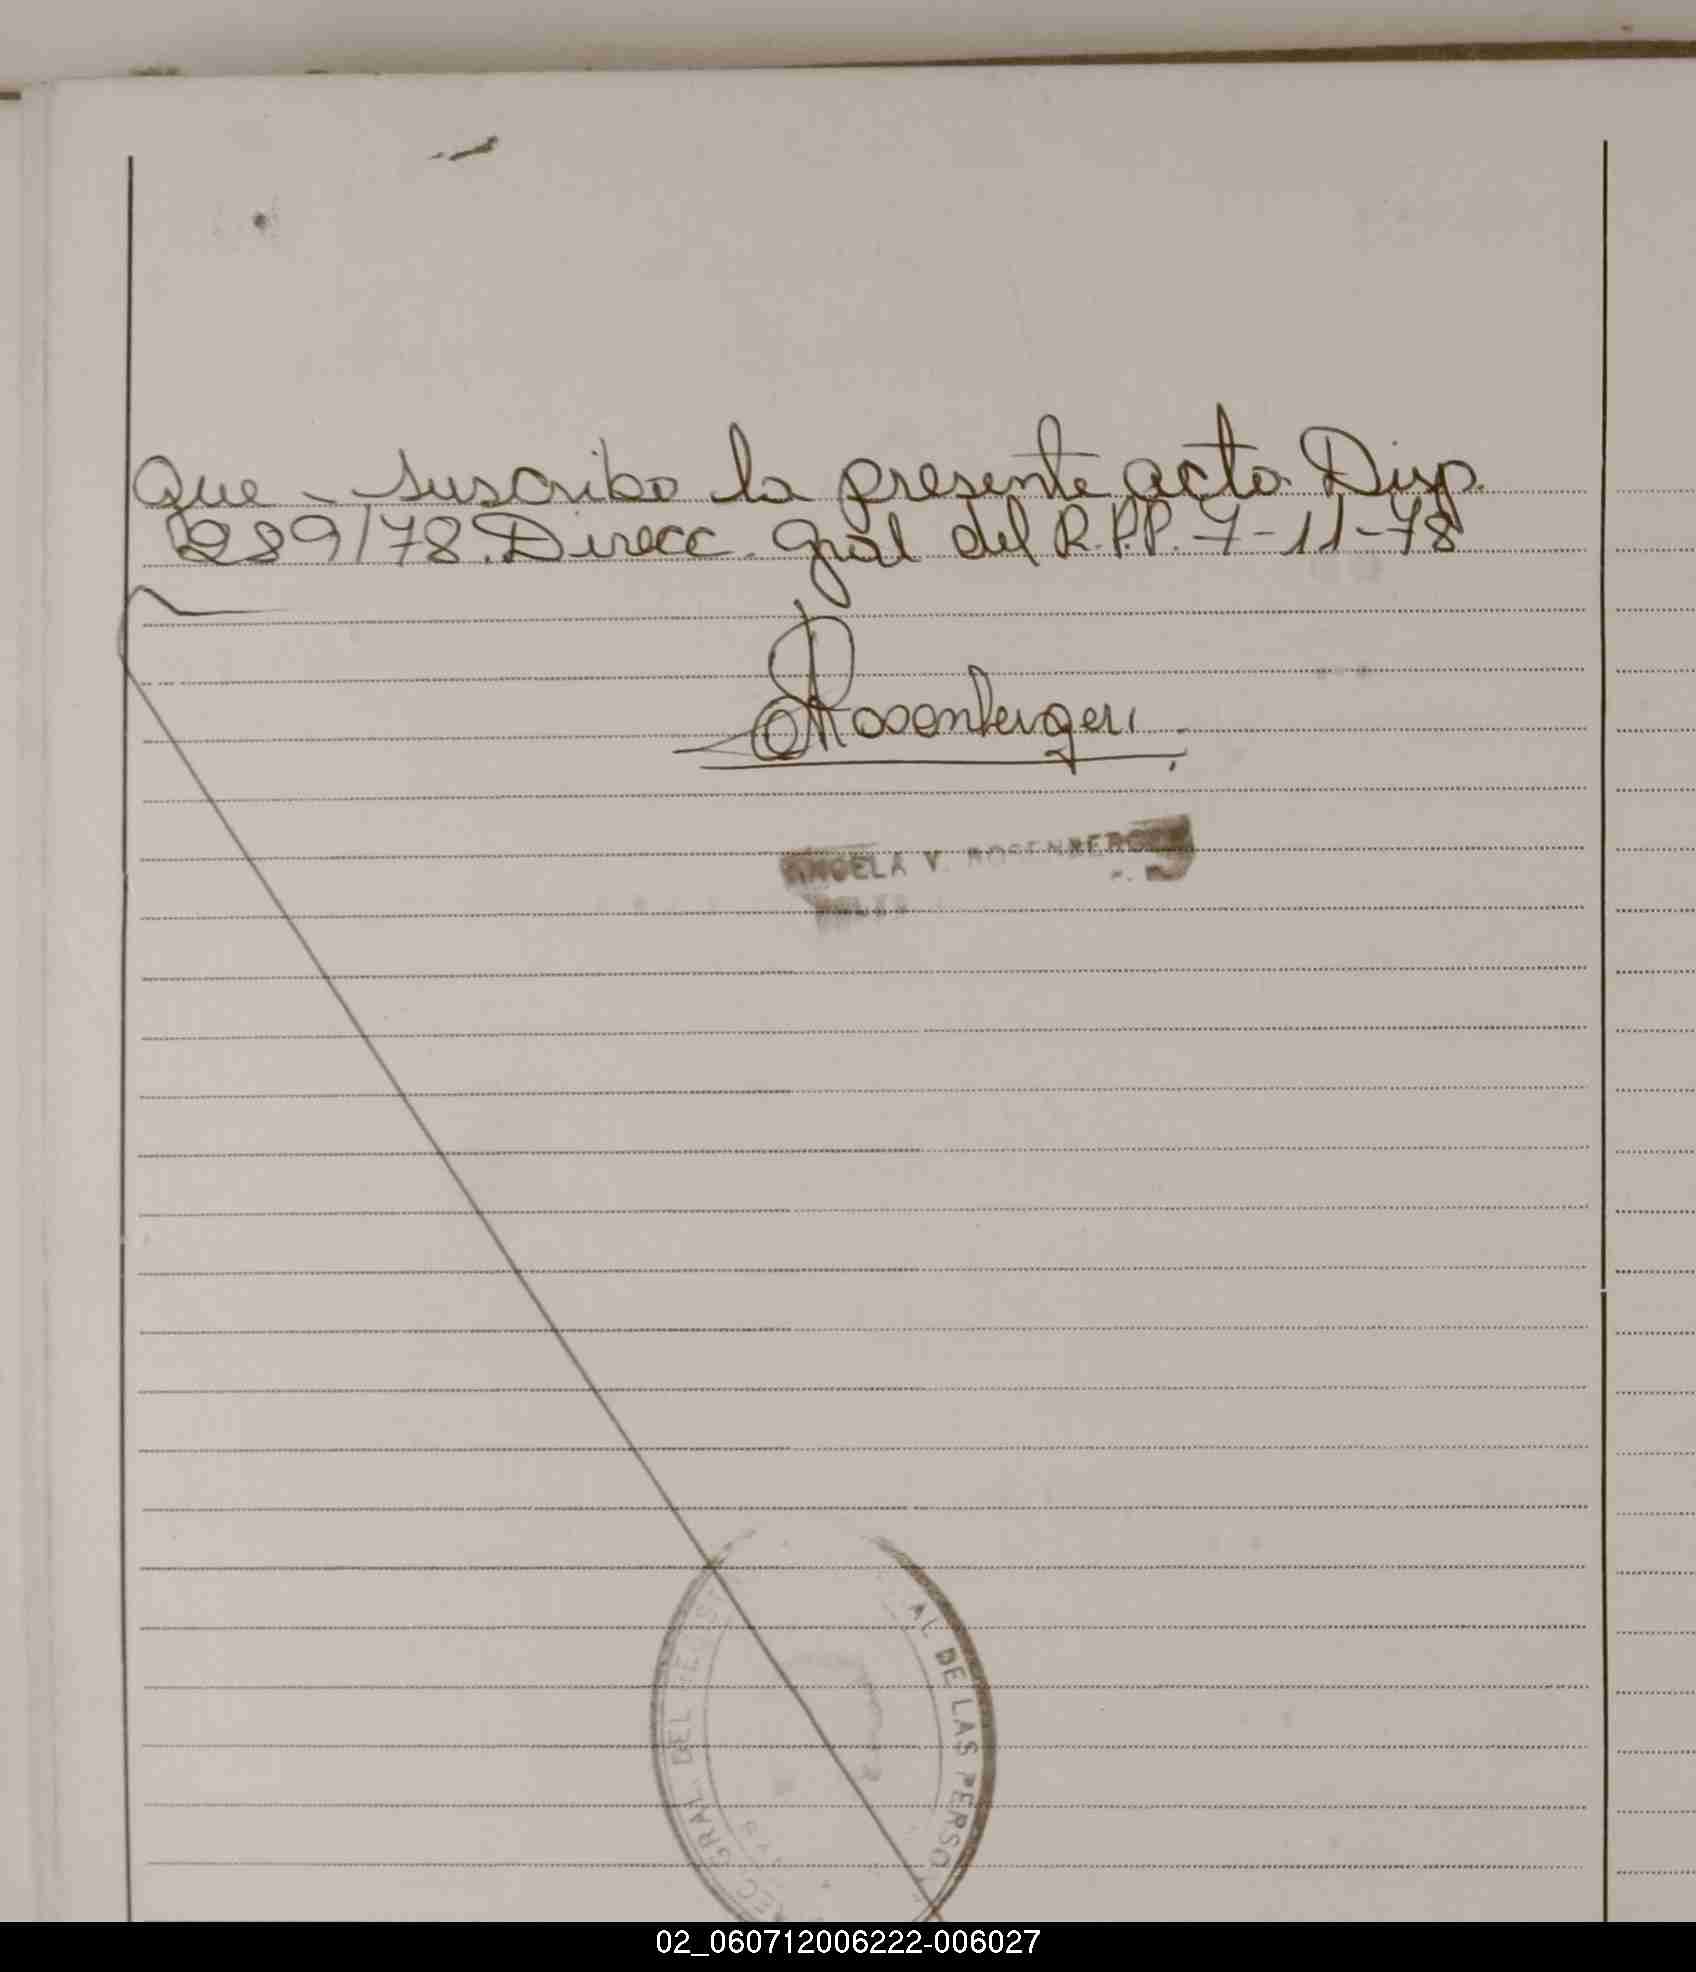 Que - suscribo la presente acta. Disp.
289/78. Direcc. Gral del R.P.P. 7-11-78
Rosenberger
ANGELA V. ROSENBERGER
DIREC. GRAL. DEL REGIST
AL DE LAS PERSO
02_060712006222-006027